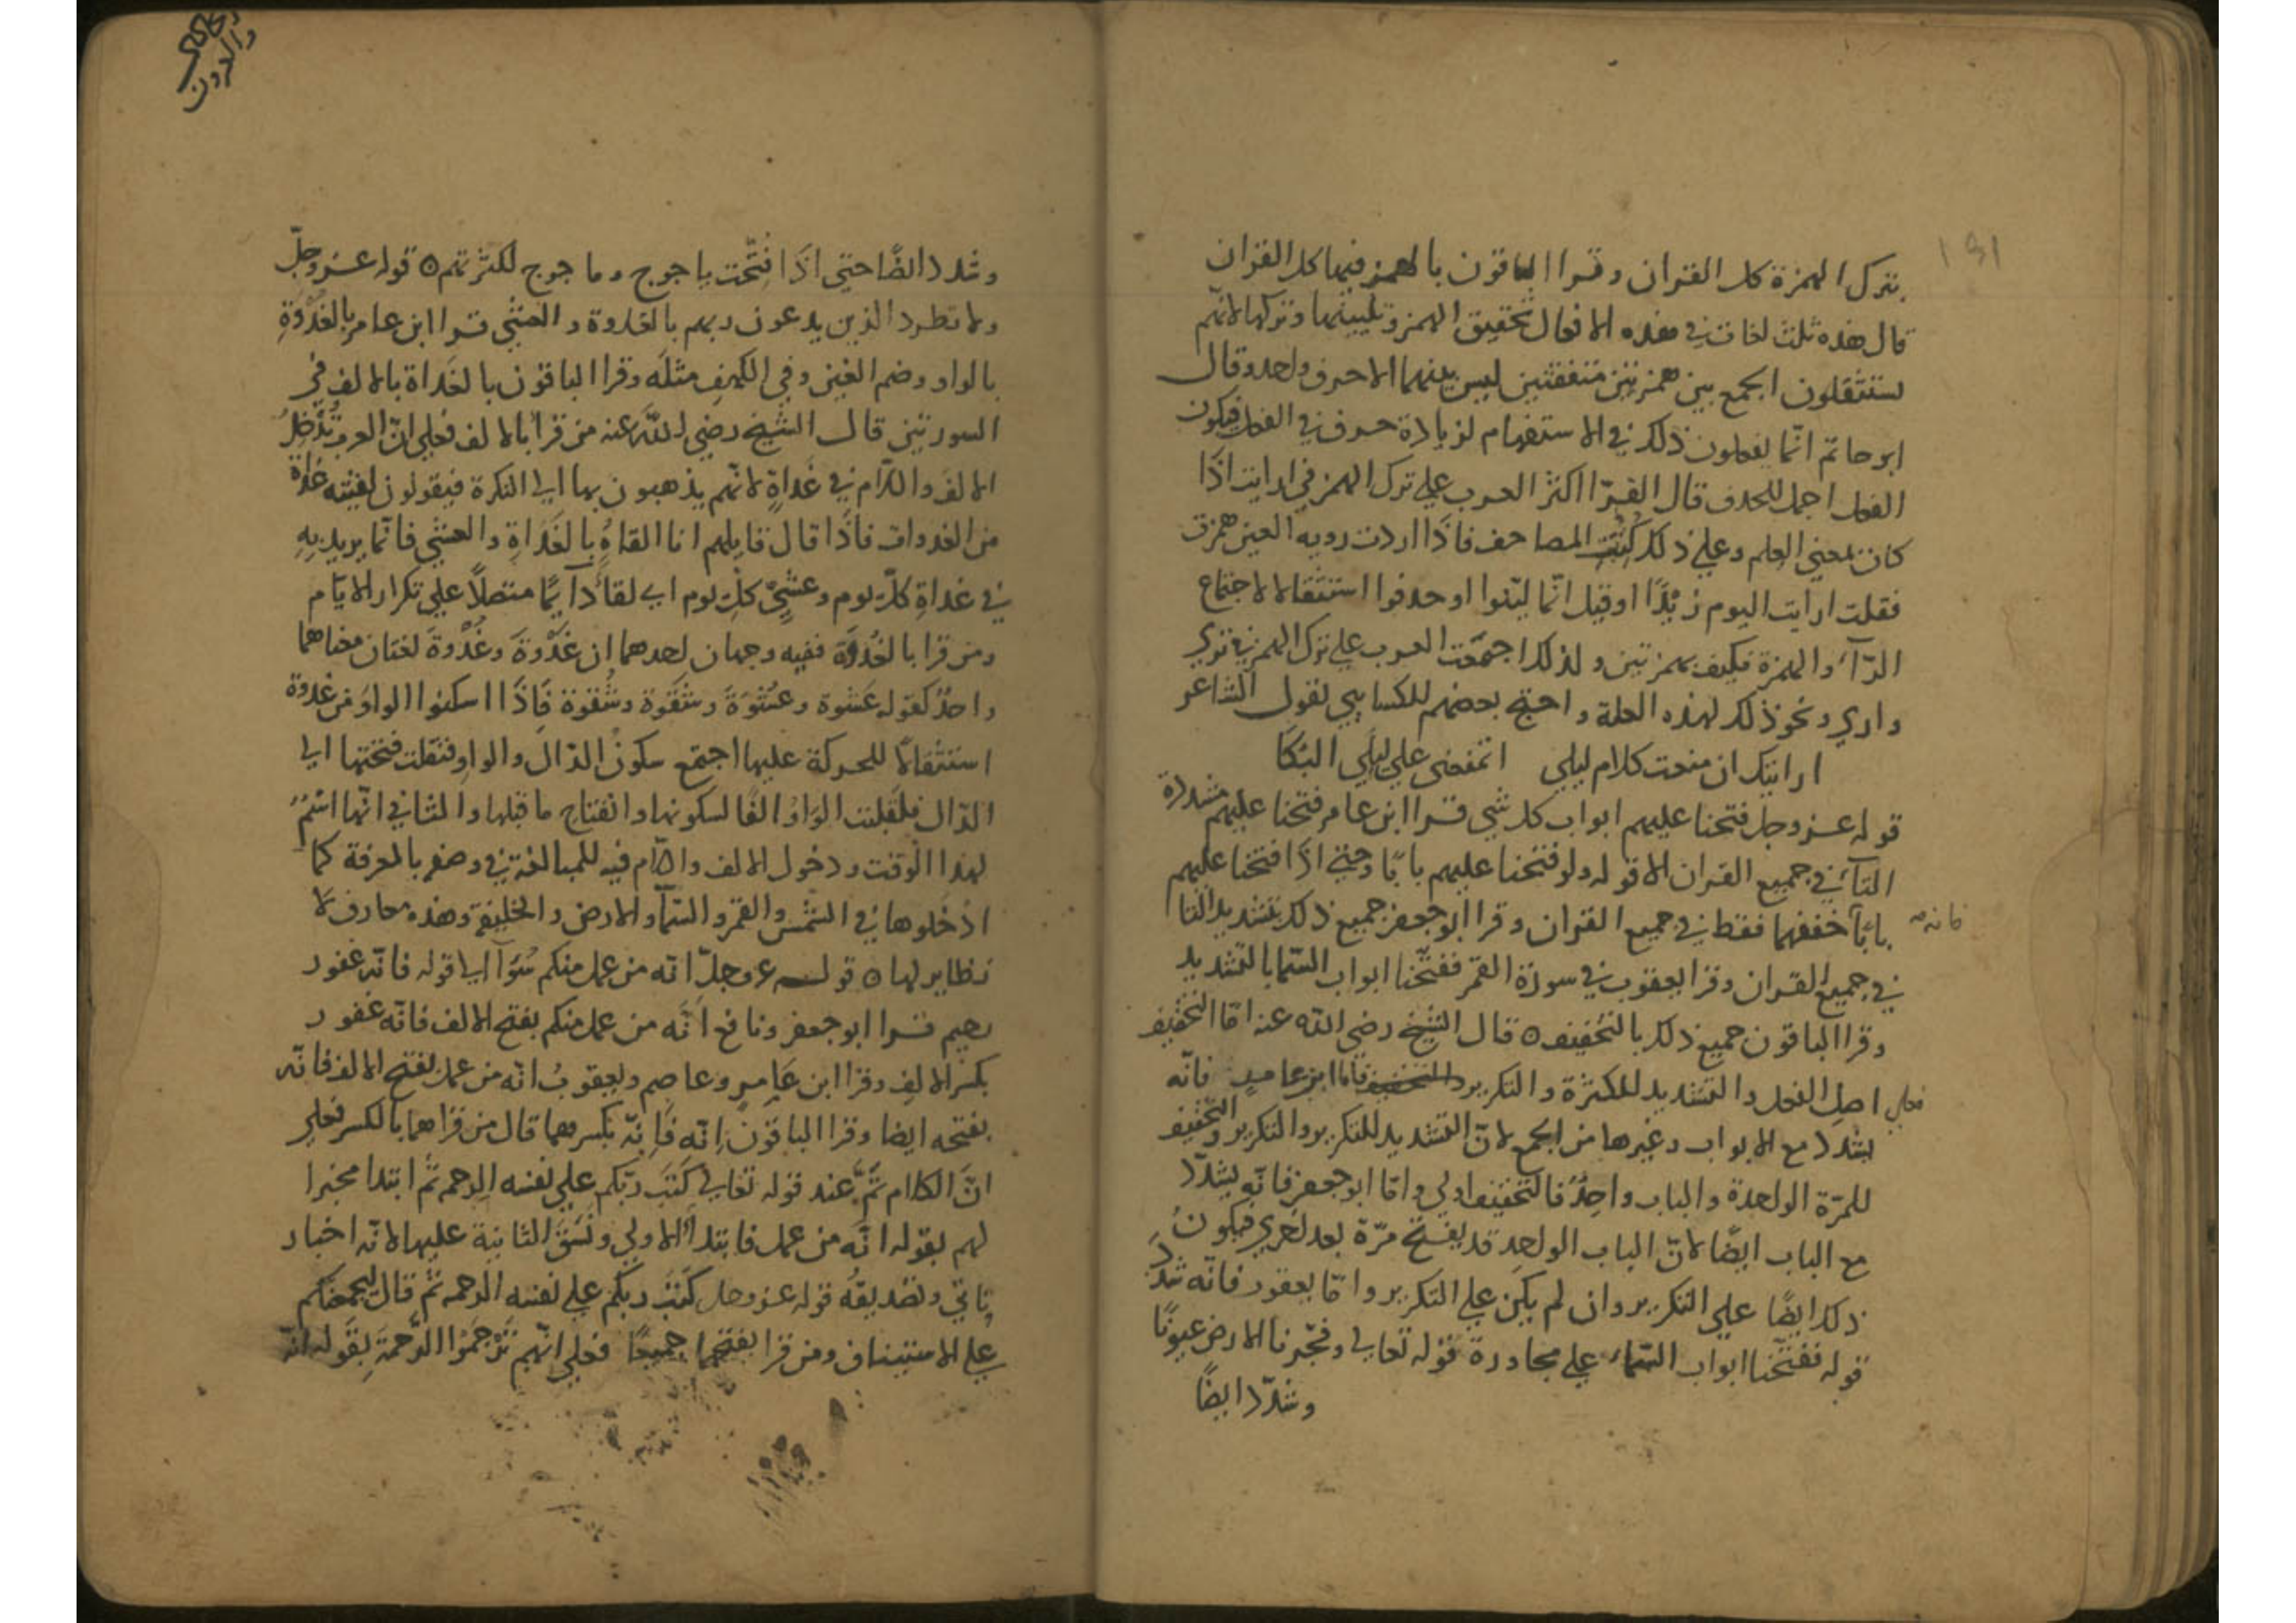 بترك الهمزة كل القران وقرا الباقون بالهمز فيها كل القران
قال هذه ثلث لغات في هذه الافعال تحقيق الهمز وتليينها وتركها لانهم
يستثقلون الجمع بين همزتين متفقتين ليس بينهما الا حرف واحد وقال
ابو حاتم انّما يفعلون ذلك في الاستفهام لزيادة حرف في الفعل فيكون
الفعل احمل للحذف قال الفرّا اكثر العرب علي ترك الهمز في ارايت اذا
كان بمعني العلم وعلي ذلك كُتُبت المصاحف فاذا اردت روية العين همزت
فقلت ارايت اليوم زيدًا وقيل انّما ليّنوا او حذفوا استثقالا لاجتماع
الرّآء والهمزة فكيف بهمزتين ولذلك اجتمعت العرب علي ترك الهمز في نري
واري ونحو ذلك لهذه العلة واحتج بعضهم للكسايي بقول الشاعر
اراتيك ان منعت كلام ليلي اتمنعني علي ليلي البُكَا
قوله عز وجل فتحنا عليهم ابواب كل شي قرا ابن عامر فتحنا عليهم مشددة
التآء في جميع القران الا قوله ولو فتحنا عليهم بابًا وحتي اذا فتحنا عليهم
بابًا خففهما فقط في جميع القران وقرا ابو جعفر جميع ذلك بتشديد التا
فانه
في جميع القران وقرا يعقوب في سورة القمر ففتّحنا ابواب السّما بالتشديد
وقرا الباقون جميع ذلك بالتخفيف ٥ قال الشيخ رضي الله عنه امّا التخفيف
فعلي اصل الفعل والتشديد للكثرة والتكرير والتخفيف فاما ابن عامر فانّه
يشدد مع الابواب وغيرها من الجمع لانّ التشديد للتكرير والتكرير والتخفيف
للمرّة الواحدة والباب واحِدٌ فالتخفيف اولي وامّا ابو جعفر فانّه يشدّد
مع الباب ايضًا لانّ الباب الواحد قد يفتح مرّة بعد اخري فيكونُ
ذلك ايضًا علي التكرير وان لم يكن علي التكرير وامّا يعقوب فانّه شدّدَ
قوله ففتّحنا ابواب السّماء علي مجاورة قوله تعالي وفجّرنا الارض عيونًا
وشدّد ايضًا
والدون
وشدد ايضًا حتي اذا فُتّحت ياجوج وماجوج لكثرتهم ٥ قوله عز وجلّ
ولا تطرد الذين يدعون ربهم بالغدوة والعشي قرا ابن عامر بالغُدْوَةِ
بالواو وضم الغين وفي الكهف مثلَه وقرا الباقون بالغداة بالالف في
السورتين قال الشيخ رضي الله عنه من قرا بالالف فعلي انّ العرب تُدْخِلُ
الالفَ واللّام في غَداةٍ لانّهم يذهبون بها الي النكرة فيقولون لقيته غداةً
من الغدوات فاذا قال قايلهم انا القاهُ بالغَداةِ والعشي فانّما يريد به
في غداةِ كلّ يوم وعشيّ كلّ يوم اي لقاء دآيمًا متصلًا علي تكرار الايّام
ومن قرا بالغُدوَة ففيه وجهان احدهما ان غَدْوةَ وغُدْوةَ لغتان معناهما
واحدٌ كقوله عَشوة وعُشْوَةَ وشَقَوة وشُقوة فاذا اسكنوا الواوُ من غدوة
استثقالًا للحركة عليها اجتمع سكونُ الدّال والواو فنقلت فتحتها الي
الدّال فلقلبت الواوُ الفًا لسكونها وانفتاح ما قبلها والثاني انّها اسْمُ
لهذا الوقت ودخول الالف واللّام فيه للمبالغة في وصفه بالمعرفة كما
ادخلوها في الشمس والقمر والسّمآء والارض والخليفة وهذه معارف لا
نظاير لها ٥ قوله عز وجلّ انّه من عمل منكم سُوَآ الي قوله فانّه غفور
رحيم قرا ابو جعفر ونافع انَّه من عمل منكم بفتح الالف فانّه غفور
بكسر الالف وقرا ابن عَامرٍ وعاصم ويعقوبُ انّه من عمل بفتح الالف فانّه
بفتحه ايضا وقرا الباقون اِنّه فَاِنّه بكسرهما قال من قراهما بالكسر فعلي
انّ الكلام تمَّ عند قوله تعالي كَتَبَ ربّكم علي نفسه الرحمه ثم ابتدا مخبرا
لهم بقوله انّه من عمل فابتدا الاولي ونَسَقَ الثانية عليها لانّه اخبار
ثانٍي وتصديقُه قوله عز وجل كَتَبَ ربّكم علي نفسه الرحمه ثم قال ليجمعنّكم
علي الاستيناف ومن قرا بفتحهما جميعًا فعلي انّهم تَرْجَمُوا الرَّحمةِ بقوله انّه